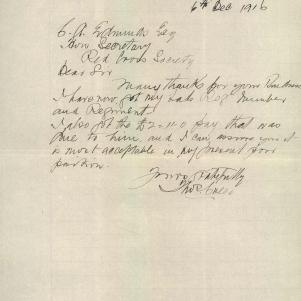 6th Dec 1916
C. A. Edmunds Esq
Hon Secretary
Red Cross Society
Dear Sir
Many thanks for your kindness
I have now got my sons Regt Number
and Regiment
I also got the £2-11-0 pay that was
due to him, and I can assure you it
is most acceptable in my present poor
position.
Yours gratefully
Thos